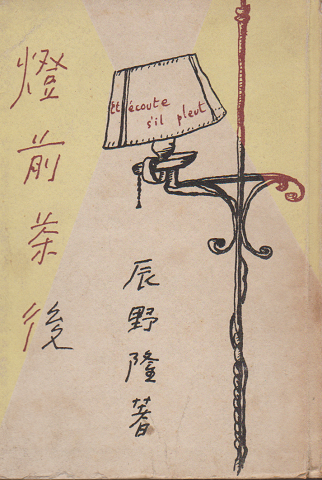 燈前茶後
Et écoute
s'il pleut
辰野隆著